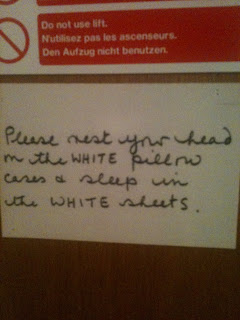 Do not use lift.
N'utilisez pas les ascenseurs.
Den Aufzug nicht benutzen.
Please rest your head
on the WHITE pillow
cases & sleep in
the WHITE sheets.